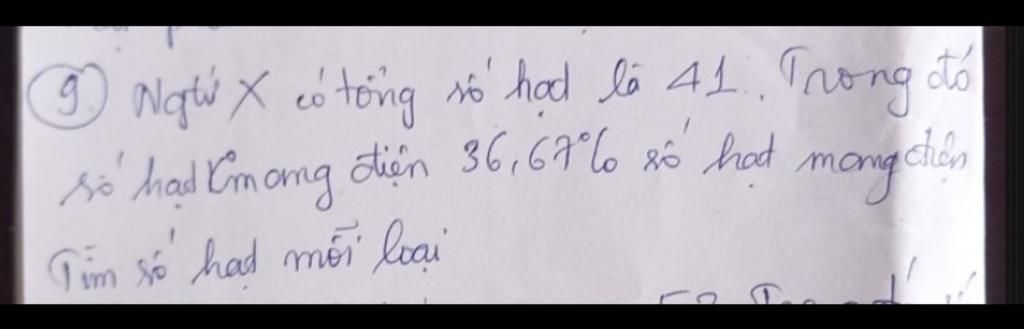 9 Ngtử X có tổng số hạt là 41. Trong đó
số hạt không mang điện 36,67% số hạt mang điện
Tìm số hạt mỗi loại